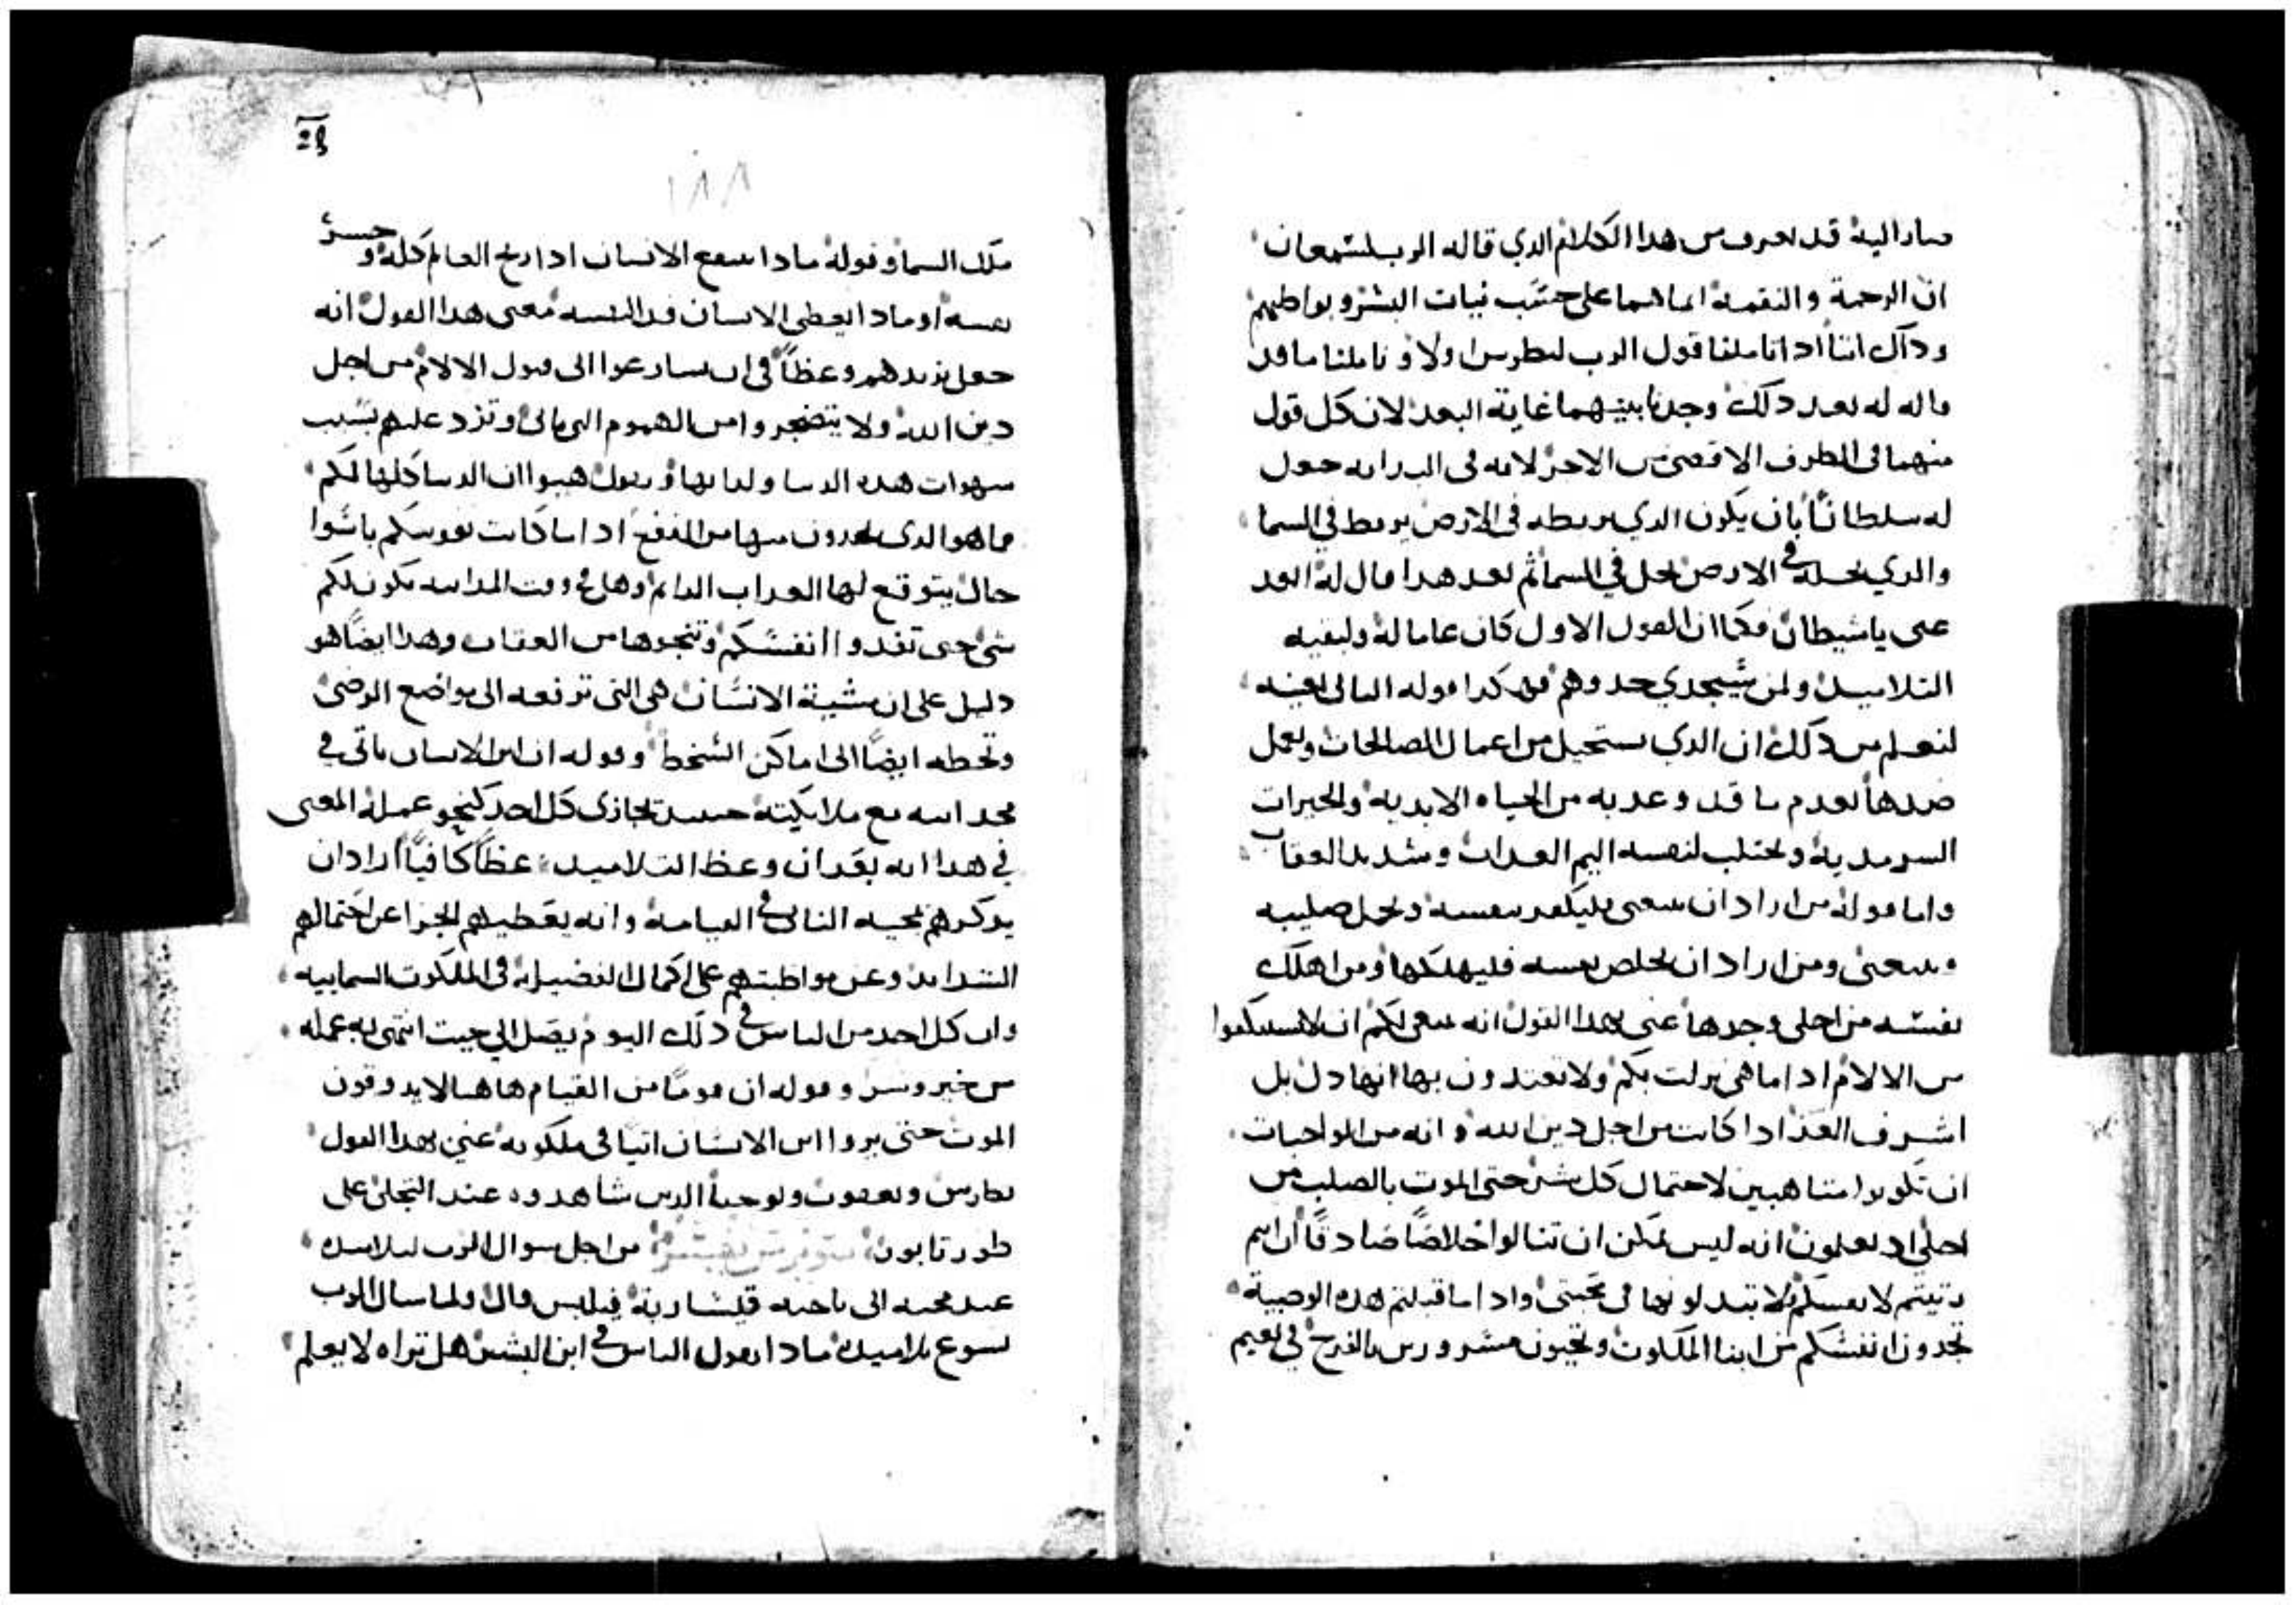 صار اليه قد نعرف من هدا الكلام الدي قاله الرب لشمعان
ان الرحمة والنقمة انما هما على حسب نيات البشر وبواطنهم
وداك اننا ادا تاملنا قول الرب لبطرس اولا وتاملنا ما قد
قاله له بعد دلك وجدنا بينهما غاية البعد لان كل قول
منهما في الطرف الاقصى من الاخر لانه في البدا انه جعل
له سلطانًا بان يكون الدي يربطه في الارض يربط في السما
والدي يحله في الارض يحل في السما ثم بعد هدا قال له ابعد
عني يا شيطان فكما ان القول الاول كان عاما له ولبقيه
التلاميد ولمن سيجدي حدوهم فهكدا قوله التالي لبقيه
لنعلم من دلك ان الدي يستحيل من اعمال الصالحات ويعمل
ضدها يعدم ما قد وعد به من الحياه الابدية والخيرات
السرمدية ويجتلب لنفسه اليم العداب وشديد العقاب
واما قوله من اراد ان يتبعني فليكفر بنفسه ويحمل صليبه
ويتبعني ومن اراد ان يخلص نفسه فليهلكها ومن اهلك
نفسه من اجلي وجدها عني بهدا القول انه ينبغي لكم ان لا تستنكفوا
من الالام ادا ما هي نزلت بكم ولا تعتدون بها انها دل بل
اشرف العز ادا كانت من اجل دين الله وانه من الواجبات
ان تكونوا متاهبين لاحتمال كل شي حتى الموت بالصلب من
اجلي اد تعلمون انه ليس يمكن ان تنالوا خلاصًا صادقًا ان انتم
رتيتم لانفسكم ولا تبدلونها في محبتي وادا ما قبلتم هده الوصية
تجدون انفسكم من ابنا الملكوت وتحيون مسرورين بالفرح في نعيم
١٨٨
ملك السما وقوله مادا ينفع الانسان ادا ربح العالم كله وخسر
نفسه او مادا يعطي الانسان فدا لنفسه معنى هدا القول انه
جعل يزيدهم وعظًا في ان يسارعوا الى قبول الالام من اجل
دين الله ولا يتضجروا من الهموم التي تاتي وترد عليهم بسبب
شهوات هده الدنيا ولداتها ويقول هبوا ان الدنيا كلها لكم
فما هو الدي تجدون منها من النفع ادا ما كانت نفوسكم باسوا
حال يتوقع لها العداب الدايم وهل في وقت المداينه يكون لكم
شي حتى تفدوا انفسكم وتنجوها من العقاب وهدا ايضًا هو
دليل على ان مشية الانسان هي التي ترفعه الى مواضع الرضى
وتحطه ايضًا الى اماكن السخط وقوله ان ابن الانسان ياتي في
مجد ابيه مع ملايكته حينيد يجازى كل احد كنحو عمله المعنى
في هدا انه بعد ان وعظ التلاميد عظًا كافيًا اراد ان
يدكرهم بمجيه التاني في القيامة وانه يعطيهم الجزا عن احتمالهم
الشدايد وعن مواظبتهم على اكمال الفضيلة في الملكوت السماييه
وان كل احد من الناس في دلك اليوم يصل الي حيت انتهى به عمله
من خير وشر وقوله ان قومًا من القيام هاهنا لا يدوقون
الموت حتى يروا ابن الانسان اتيًا في ملكوته عني بهدا القول
بطرس ويعقوب ويوحنا الدين شاهدوه عند التجلي على
طور تابون من اجل سوال الرب لتلاميده
عند مجيه الى ناحيه قيسارية فيلبس قال ولما سال الرب
يسوع تلاميده مادا يقول الناس في ابن البشر هل تراه لا يعلم